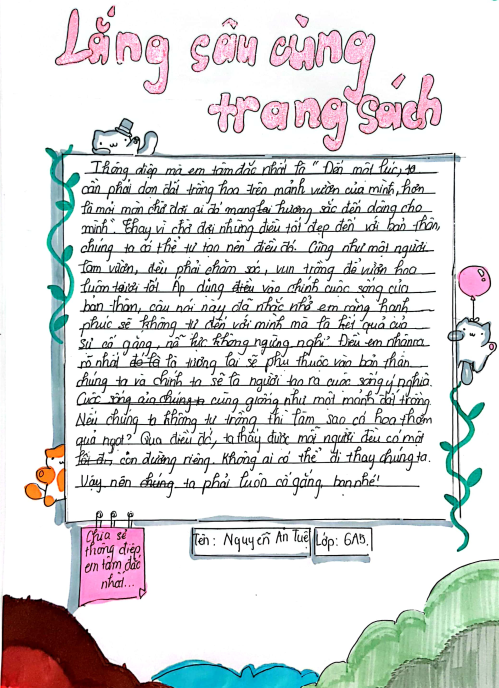 Lắng sâu cùng
trang sách
Thông điệp mà em tâm đắc nhất là "Đến một lúc, ta
cần phải dọn đất trồng hoa trên mảnh vườn của mình, hơn
là mỏi mòn chờ đợi ai đó mang lại hương sắc đến dâng cho
mình" Thay vì chờ đợi những điều tốt đẹp đến với bản thân,
chúng ta có thể tự tạo nên điều đó. Cũng như một người
làm vườn, đều phải chăm sóc, vun trồng để vườn hoa
luôn tươi tốt Áp dụng điều vào chính cuộc sống của
bản thân, câu nói này đã nhắc nhở em rằng hạnh
phúc sẽ không tự đến với mình mà là kết quả của
sự cố gắng, nỗ lực không ngừng nghỉ. Điều em nhận ra
rõ nhất đó là là tương lai sẽ phụ thuộc vào bản thân
chúng ta và chính ta sẽ là người tạo ra cuộc sống ý nghĩa.
Cuộc sống của chúng ta cũng giống như một mảnh đất trống.
Nếu chúng ta không tự trồng thì làm sao có hoa thơm
quả ngọt? Qua điều đó, ta thấy được mỗi người đều có một
lối đi, con đường riêng. Không ai có thể đi thay chúng ta.
Vậy nên chúng ta phải luôn cố gắng bạn nhé!
Chia sẻ
thông điệp
em tâm đắc
nhất...
Tên: Nguyễn An Tuệ Lớp: 6A5.